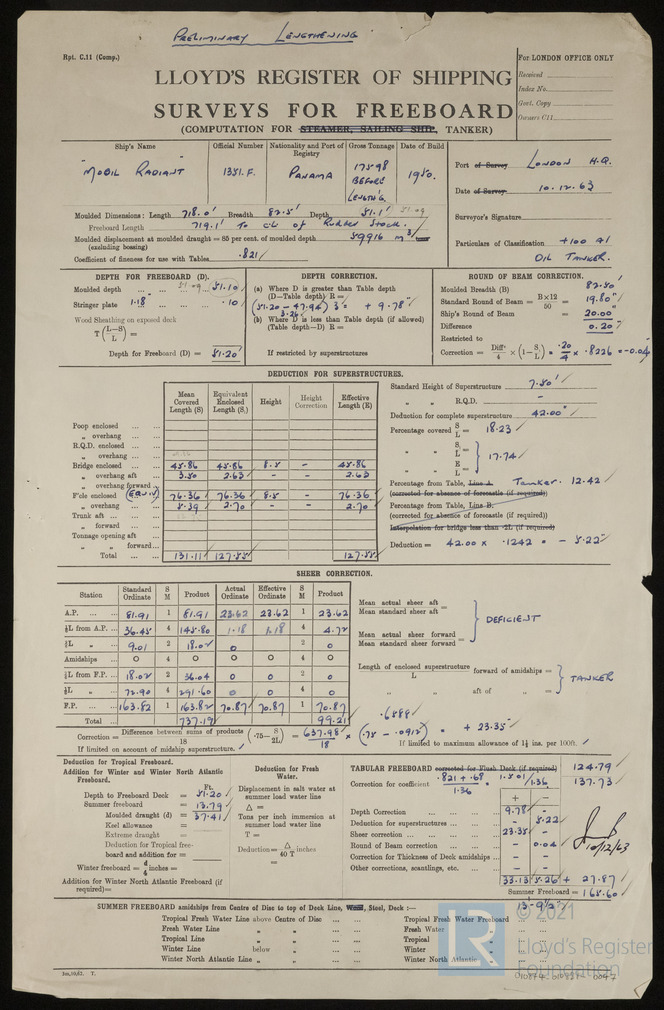 PRELIMINARY LENGTHENING
Rpt. C.11 (Comp.)
For LONDON OFFICE ONLY
Received
Index No.
Govt. Copy
Owners C11
LLOYD'S REGISTER OF SHIPPING
SURVEYS FOR FREEBOARD
(COMPUTATION FOR STEAMER, SAILING SHIP, TANKER)
Ship's Name
Official Number
Nationality and Port of Registry
Gross Tonnage
Date of Build
"MOBIL RADIANT"
1351.F.
PANAMA
17598 BEFORE LENGTH'G.
1950.
Port of Survey LONDON H.Q.
Date of Survey 10.12.63
Surveyor's Signature
Particulars of Classification +100 A1
OIL TANKER.
Moulded Dimensions: Length 718.0' Breadth 82.5' Depth 51.1' 51.09
Freeboard Length 719.1' To CL of RUDDER STOCK.
Moulded displacement at moulded draught = 85 per cent. of moulded depth 59916 m³ tons
(excluding bossing)
Coefficient of fineness for use with Tables .821
DEPTH FOR FREEBOARD (D).
Moulded depth ... 51.09 51.10
Stringer plate 1.18 ... .10
Wood Sheathing on exposed deck
T (L–S / L) =
Depth for Freeboard (D) = 51.20
DEPTH CORRECTION.
(a) Where D is greater than Table depth
(D—Table depth) R =
(51.20 - 47.94) 3 = + 9.78"
3.26
(b) Where D is less than Table depth (if allowed)
(Table depth—D) R =
If restricted by superstructures
ROUND OF BEAM CORRECTION.
Moulded Breadth (B) 82.50'
Standard Round of Beam = B×12 / 50 = 19.80"
Ship's Round of Beam = 20.00
Difference 0.20"
Restricted to
Correction = Diffce / 4 × (1 – S₁ / L) = .20 / 4 × .8226 = -0.04
DEDUCTION FOR SUPERSTRUCTURES.
Mean Covered Length (S)
Equivalent Enclosed Length (S₁)
Height
Height Correction
Effective Length (E)
Poop enclosed
„ overhang
R.Q.D. enclosed
„ overhang
Bridge enclosed 45.86 45.86 8.5 - 45.86
„ overhang aft 3.50 2.63 - - 2.63
„ overhang forward
F'cle enclosed (EQUIV) 76.36 76.36 8.5 - 76.36
„ overhang 5.39 2.70 - - 2.70
Trunk aft
„ forward
Tonnage opening aft
„ „ forward
Total 131.11 127.55 127.55
Standard Height of Superstructure 7.50'
„ „ R.Q.D. -
Deduction for complete superstructure 42.00"
Percentage covered S / L = 18.23
„ „ S₁ / L =
„ „ E / L = } 17.74
Percentage from Table, Line A. Tanker. 12.42
(corrected for absence of forecastle (if required))
Percentage from Table, Line B.
(corrected for absence of forecastle (if required))
Interpolation for bridge less than ·2L (if required)
Deduction = 42.00 × .1242 = - 5.22"
SHEER CORRECTION.
Station
Standard Ordinate
S M
Product
Actual Ordinate
Effective Ordinate
S M
Product
A.P. 81.91 1 81.91 23.62 23.62 1 23.62
⅙L from A.P. 36.45 4 145.80 1.18 1.18 4 4.72
⅓L „ 9.01 2 18.02 0 2 0
Amidships 0 4 0 0 0 4 0
⅓L from F.P. 18.02 2 36.04 0 0 2 0
⅙L „ 72.90 4 291.60 0 0 4 0
F.P. 163.82 1 163.82 70.87 70.87 1 70.87
Total 737.19 99.21
Mean actual sheer aft
Mean standard sheer aft =
Mean actual sheer forward
Mean standard sheer forward = } DEFICIENT
Length of enclosed superstructure / L forward of amidships =
„ „ aft of „ = } TANKER
Correction = Difference between sums of products / 18 (·75 – S / 2L) = 637.98 / 18 × (.75 - .0912) = + 23.35
.6588
If limited on account of midship superstructure.
If limited to maximum allowance of 1½ ins. per 100ft.
Deduction for Tropical Freeboard.
Addition for Winter and Winter North Atlantic Freeboard.
Ft.
Depth to Freeboard Deck = 51.20
Summer freeboard = 13.79
Moulded draught (d) = 37.41
Keel allowance =
Extreme draught =
Deduction for Tropical freeboard and addition for =
Winter freeboard = d / 4 inches =
Addition for Winter North Atlantic Freeboard (if required) =
Deduction for Fresh Water.
Displacement in salt water at summer load water line
Δ =
Tons per inch immersion at summer load water line
T =
Deduction = Δ / 40 T inches
=
TABULAR FREEBOARD corrected for Flush Deck (if required) 124.79
Correction for coefficient .821 + .68 / 1.36 = 1.501 / 1.36 137.73
+ -
Depth Correction 9.78 -
Deduction for superstructures - 5.22
Sheer correction 23.35 -
Round of Beam correction - 0.04
Correction for Thickness of Deck amidships - -
Other corrections, scantlings, etc. -
33.13 5.26 + 27.87
Summer Freeboard = 165.60
13'-9½"
10/12/63
SUMMER FREEBOARD amidships from Centre of Disc to top of Deck Line, Wood, Steel, Deck :—
Tropical Fresh Water Line above Centre of Disc
Fresh Water Line „ „
Tropical Line „ „
Winter Line below „
Winter North Atlantic Line „ „
Tropical Fresh Water Freeboard
Fresh Water „
Tropical „
Winter „
Winter North Atlantic „
2m.10,62. T.
© 2021
LR
Lloyd's Register
Foundation